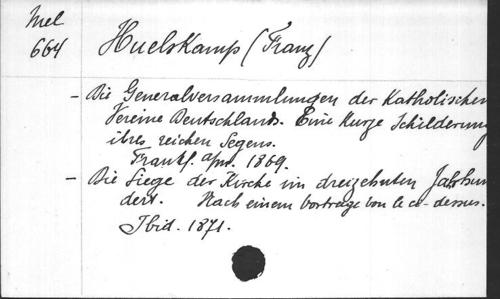 Mel
664
Huelskamp (Franz)
- Die Generalversammlungen der Katholischen
Vereine Deutschlands. Eine Kurze Schilderung
ihres reichen Segens.
Frankf. a/m. 1869.
- Die Siege der Kirche im dreizehnten Jahrhun
dert. Nach einem Vortrage von le ci-dessus.
Ibid. 1871.